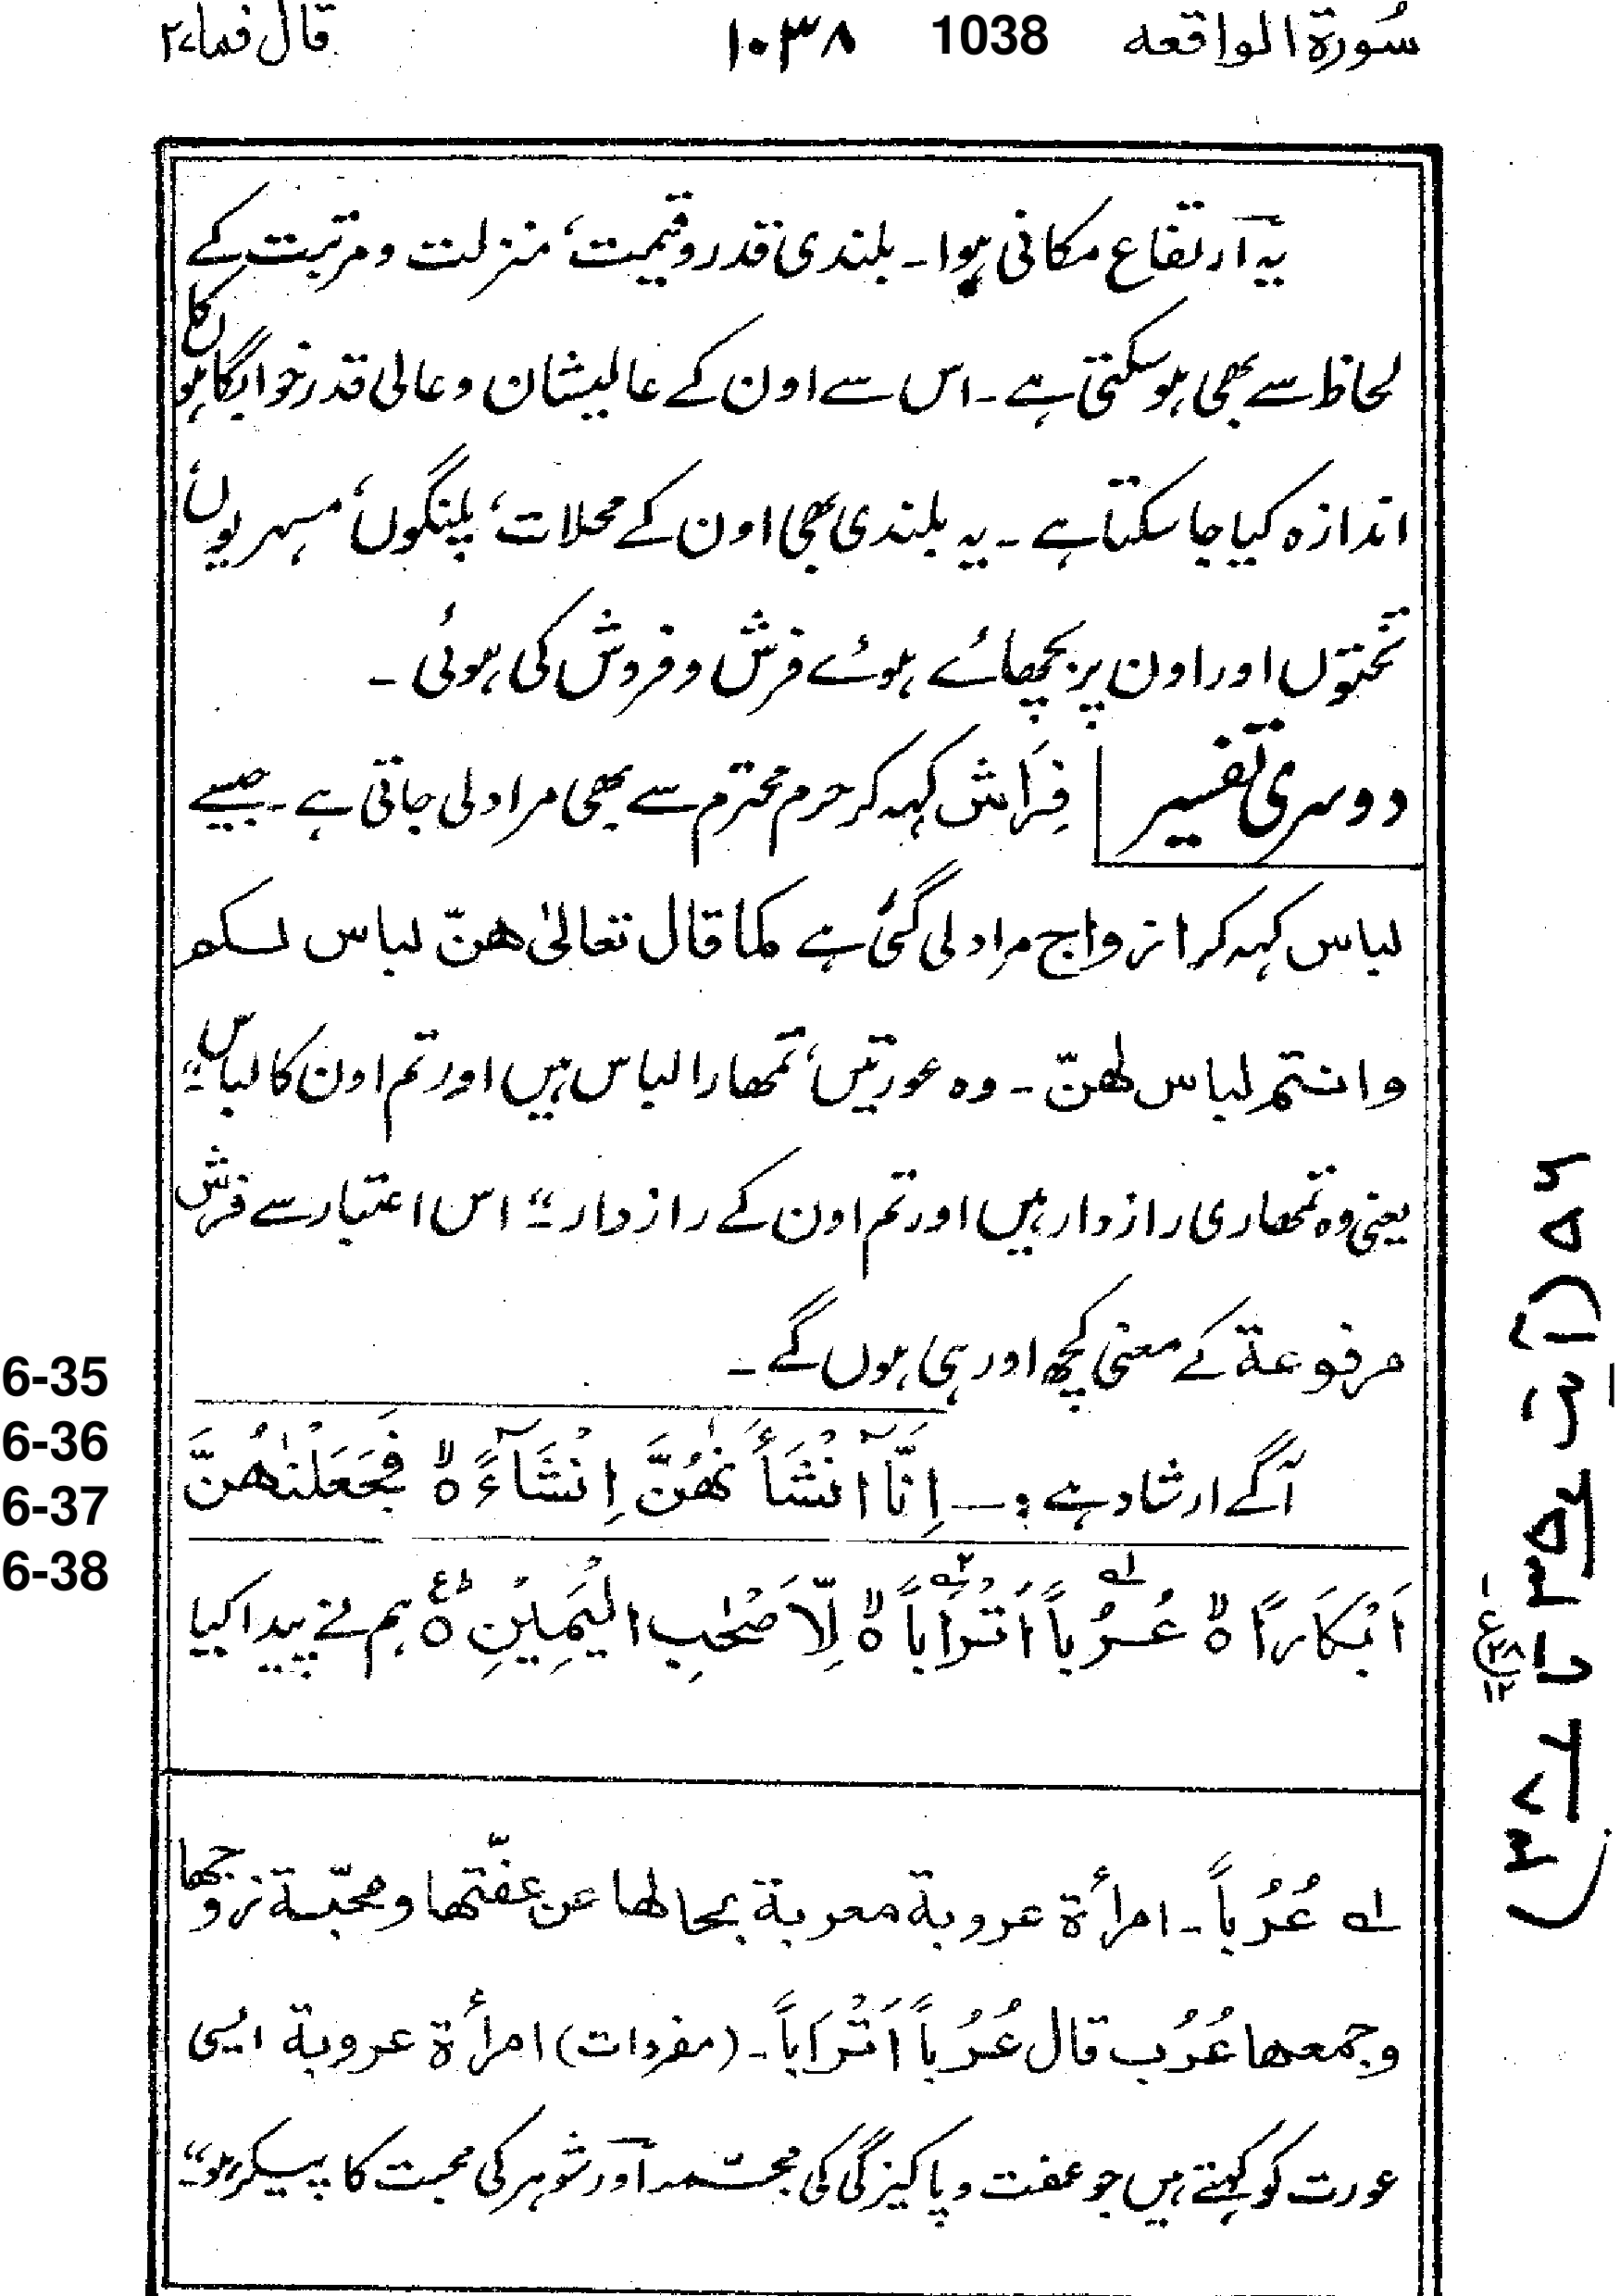 سُورة الواقعه 1038 ۱۰۳۸ قال فما ۲۷
یہ ارتفاع مکانی ہوا۔ بلندی قدر وقیمت، منزلت و مرتبت کے
لحاظ سے بھی ہوسکتی ہے۔ اس سے اون کے عالیشان و عالی قدر خوابگاہوں کا
اندازہ کیا جاسکتا ہے۔ یہ بلندی بھی اون کے محلات، پلنگوں، مسہریوں،
تختوں اور اون پر بچھائے ہوئے فرش و فروش کی ہوئی۔
دوسری تفسیر | فِرَاش کہہ کر حرم محترم سے بھی مراد لی جاتی ہے۔ جیسے
لباس کہہ کر ازواج مراد لی گئی ہے کما قال تعالیٰ ھنّ لباس لکم
وانتم لباس لھنّ۔ وہ عورتیں، تمھارا لباس ہیں اور تم اون کا لباس"
یعنی وہ تمھاری رازدار ہیں اور تم اون کے رازدار" اس اعتبار سے فرش
مرفوعة کے معنی کچھ اور ہی ہوں گے۔
6-35
6-36
6-37
6-38
آگے ارشاد ہے :— اِنَّآ اَنْشَأْنٰهُنَّ اِنْشَآءً ۙ فَجَعَلْنٰهُنَّ
اَبْکَارًا ۙ عُرُباً لہ اَتْرَاباً ۲ ۙ لِّاَصْحٰبِ الْیَمِیْنِ ؕ ہم نے پیدا کیا
۵۶ (آیت ۳۵ تا ۳۸)
ع
۳۸
۱۲
لہ عُرُباً۔ امرأة عروبة معربة بحالها عن عفّتها و محبّة زوجها
وجمعها عُرُب قال عُرُباً اَتْرَاباً۔ (مفردات) امرأة عروبة ایسی
عورت کو کہتے ہیں جو عفت و پاکیزگی کی مجسّمہ اور شوہر کی محبت کا پیکر ہو"